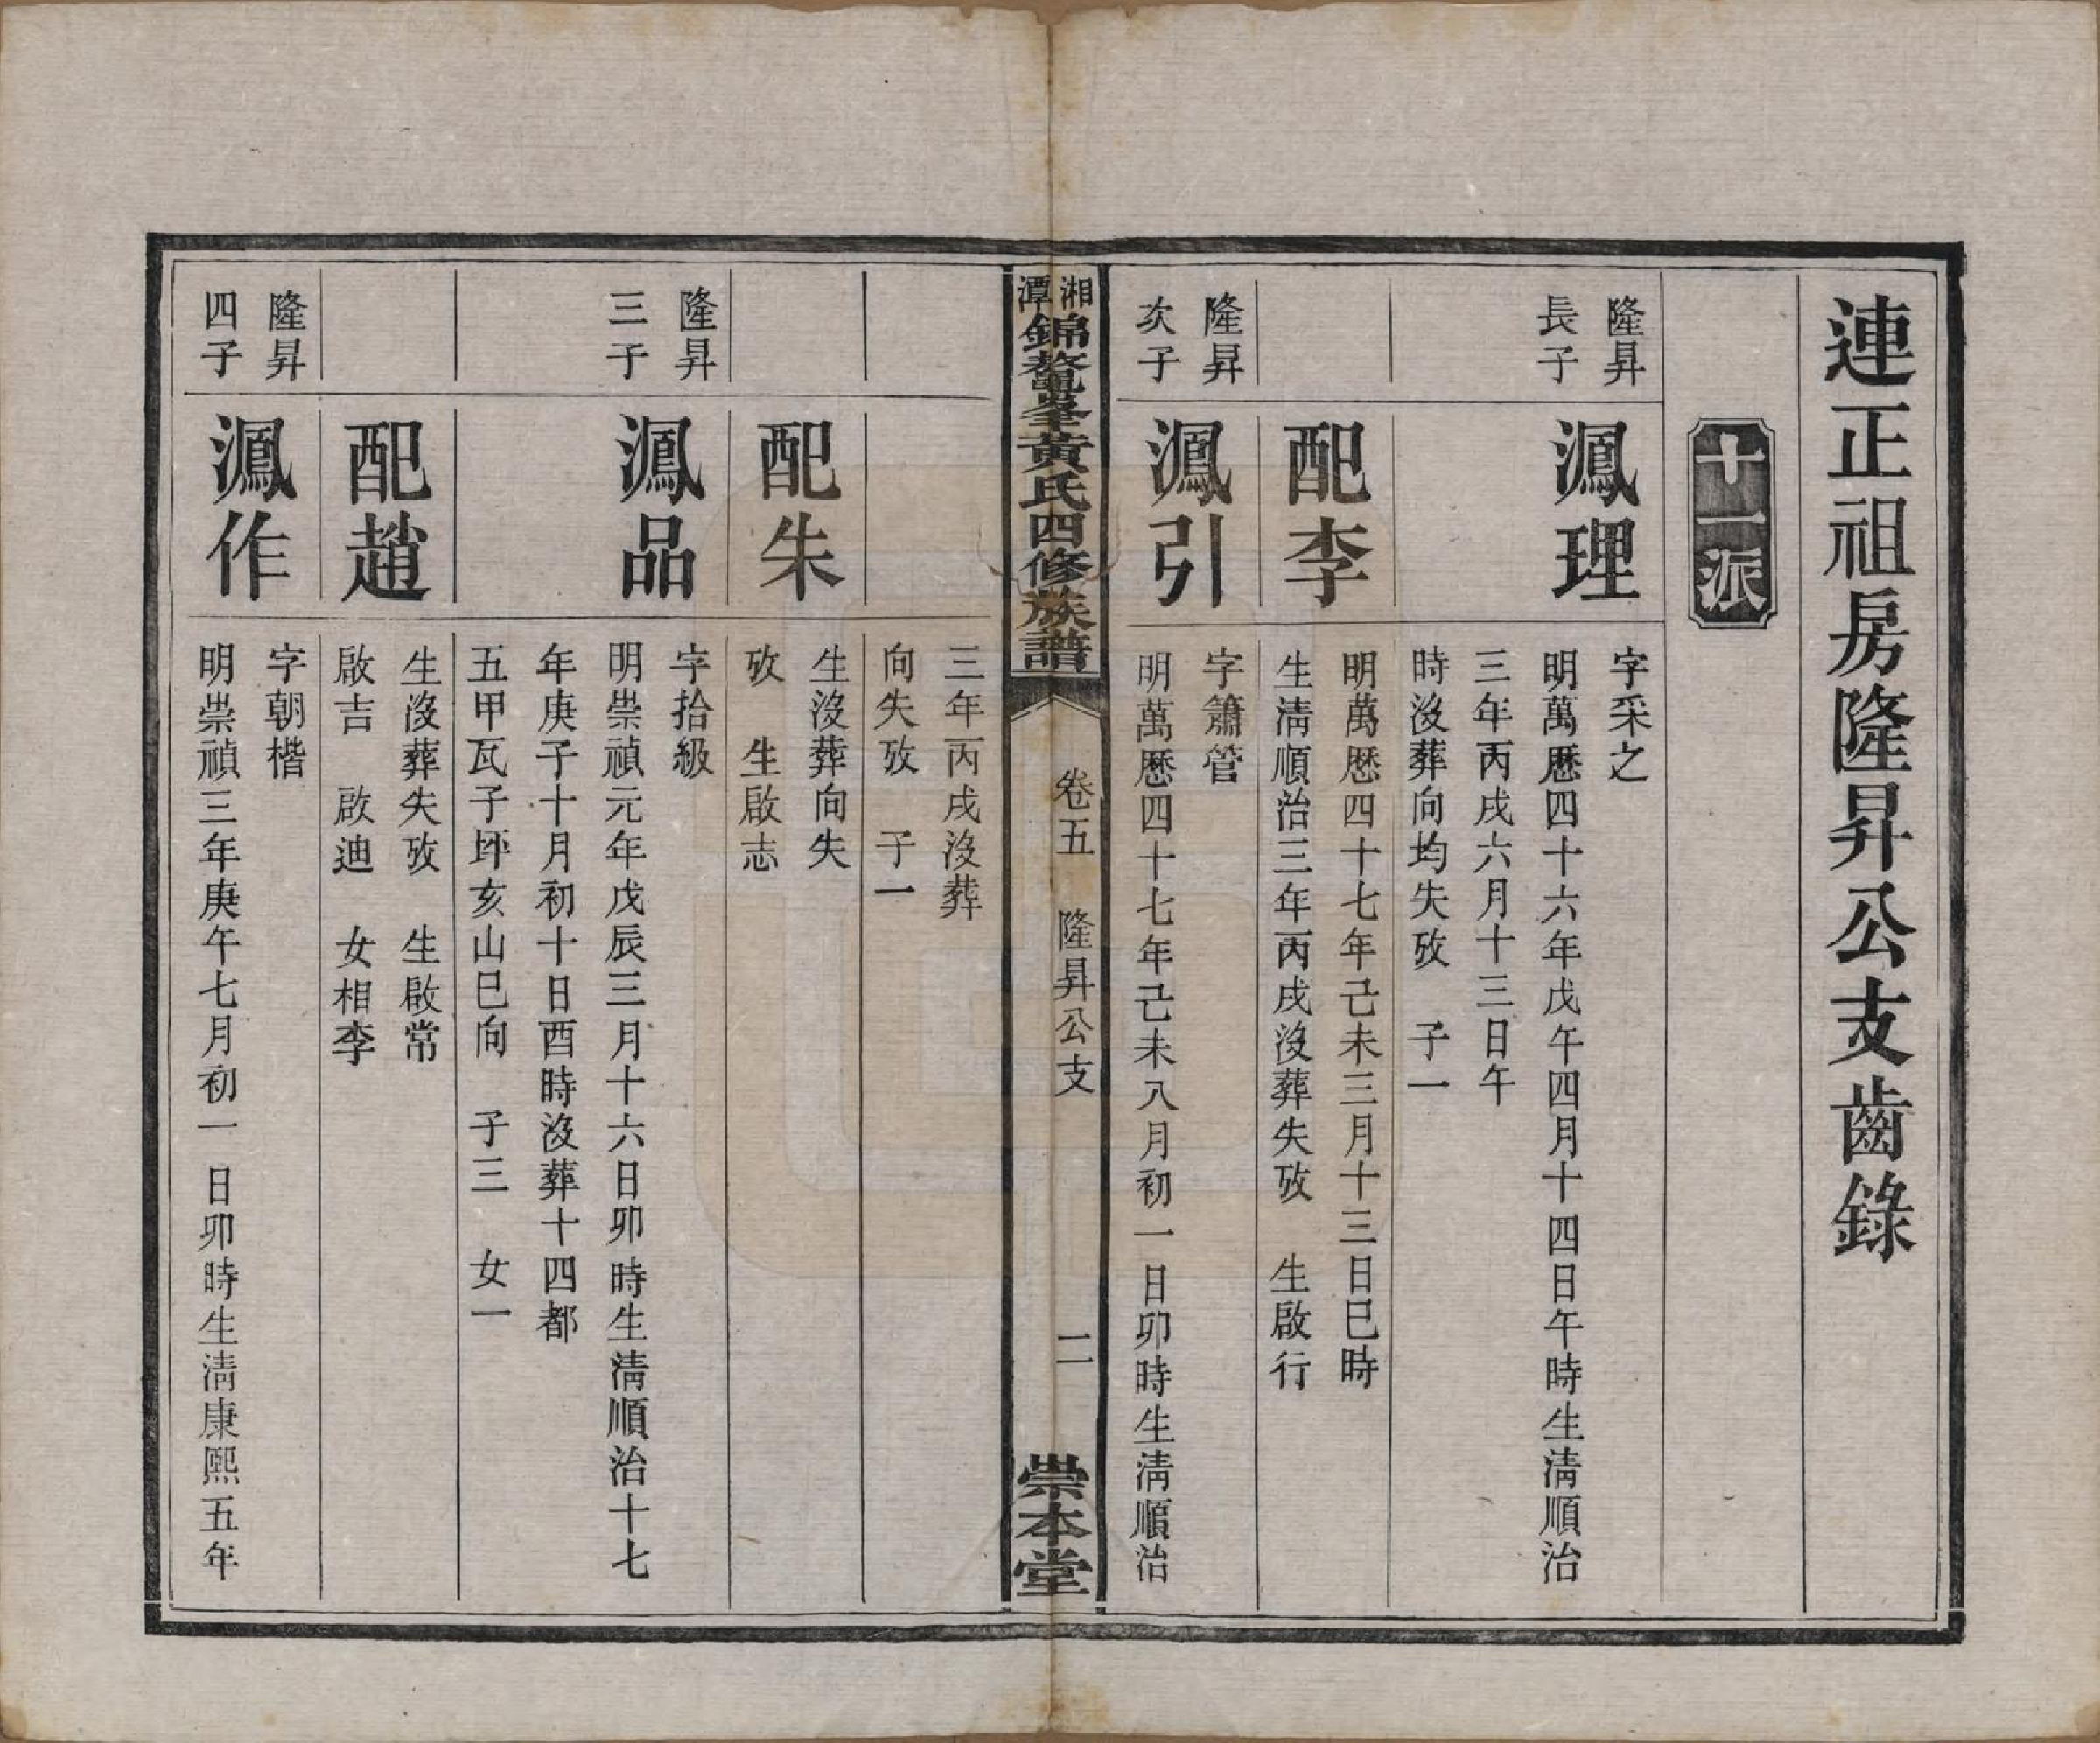 連正祖房隆昇公支齒錄
十一派
隆昇
長子
鳳理
字采之
明萬曆四十六年戊午四月十四日午時生淸順治
三年丙戌六月十三日午
時沒葬向均失攷　子一
配李
明萬曆四十七年己未三月十三日巳時
生淸順治三年丙戌沒葬失攷　生啟行
隆昇
次子
鳳引
字簫管
明萬曆四十七年己未八月初一日卯時生淸順治
湘潭錦鼇峯黃氏四修族譜
卷五　隆昇公支
二
崇本堂
三年丙戌沒葬
向失攷　子一
配朱
生沒葬向失
攷　生啟志
隆昇
三子
鳳品
字拾級
明崇禎元年戊辰三月十六日卯時生淸順治十七
年庚子十月初十日酉時沒葬十四都
五甲瓦子坏亥山巳向　子三　女一
配趙
生沒葬失攷　生啟常
啟吉　啟迪　女相李
隆昇
四子
鳳作
字朝楷
明崇禎三年庚午七月初一日卯時生淸康熙五年